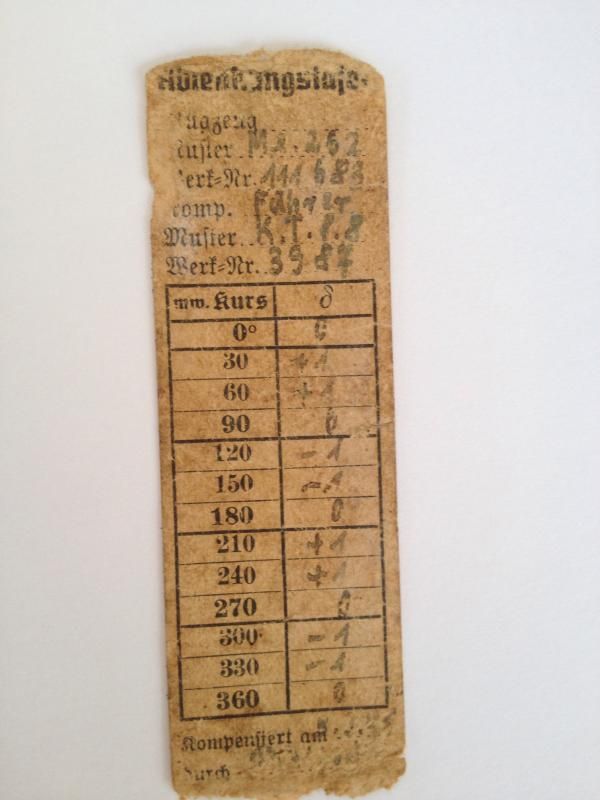 Ablenkungstafel
Flugzeug
Muster Me. 262
Werk-Nr. 111683
Komp. Führer
Muster K.T.P.8
Werk-Nr. 3987
mw. Kurs δ
0° 0
30 +1
60 +1
90 0
120 -1
150 -1
180 0
210 +1
240 +1
270 0
300 -1
330 -1
360 0
Kompensiert am
durch